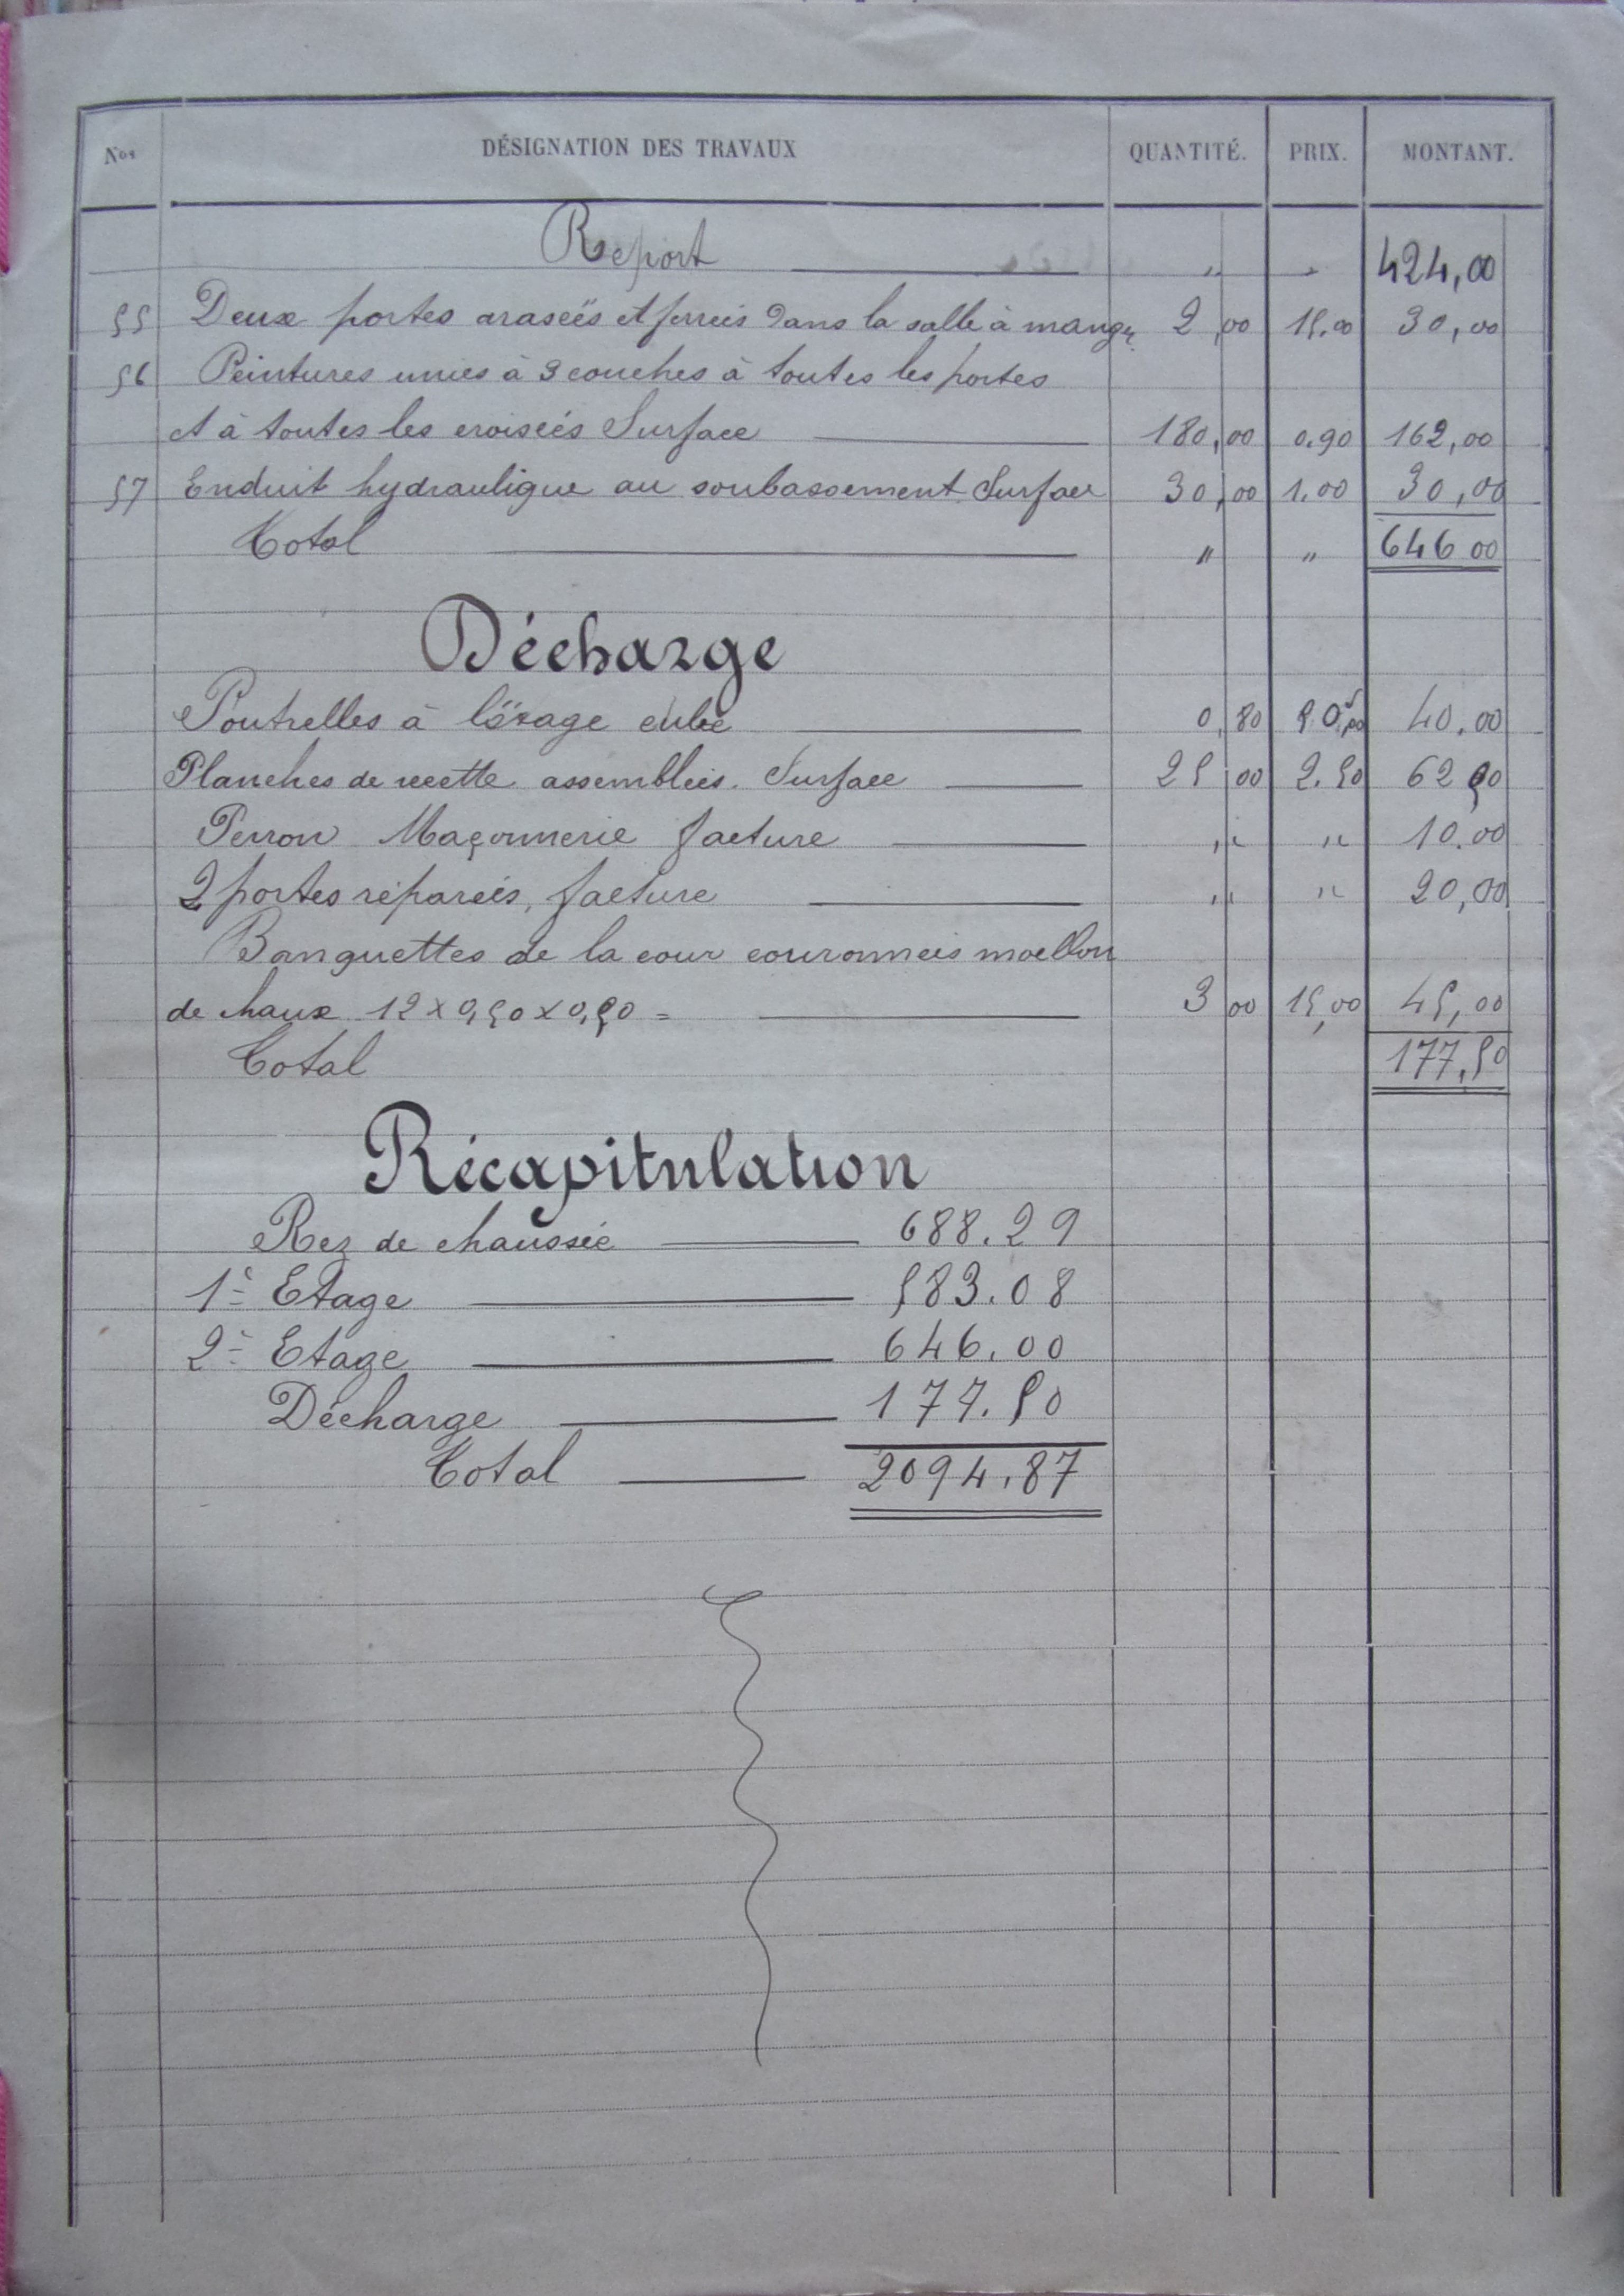 Nos DÉSIGNATION DES TRAVAUX QUANTITÉ. PRIX. MONTANT.
Report 〃 〃 424,00
55 Deux portes araseés et ferreés dans la salle à manger 2,00 15.00 30,00
56 Peintures unies à 3 couches à toutes les portes
et à toutes les croiseés Surface 180,00 0.90 162,00
57 Enduit hydraulique au soubassement Surface 30,00 1.00 30,00
Total 〃 〃 646 00
Décharge
Poutrelles à l'étage cube 0,80 50,00 40.00
Planches de recette assembleés. Surface 25,00 2.50 62 50
Perron Maçonnerie facture 〃 〃 10.00
2 portes répareés, facture 〃 〃 20,00
Banquettes de la cour couronneés moellon
de chaux 12 x 0,50 x 0,50 = 3 00 15,00 45,00
Total 177,50
Récapitulation
Rez de chausseé 688.29
1e Etage 583.08
2e Etage 646.00
Décharge 177.50
Total 2094.87